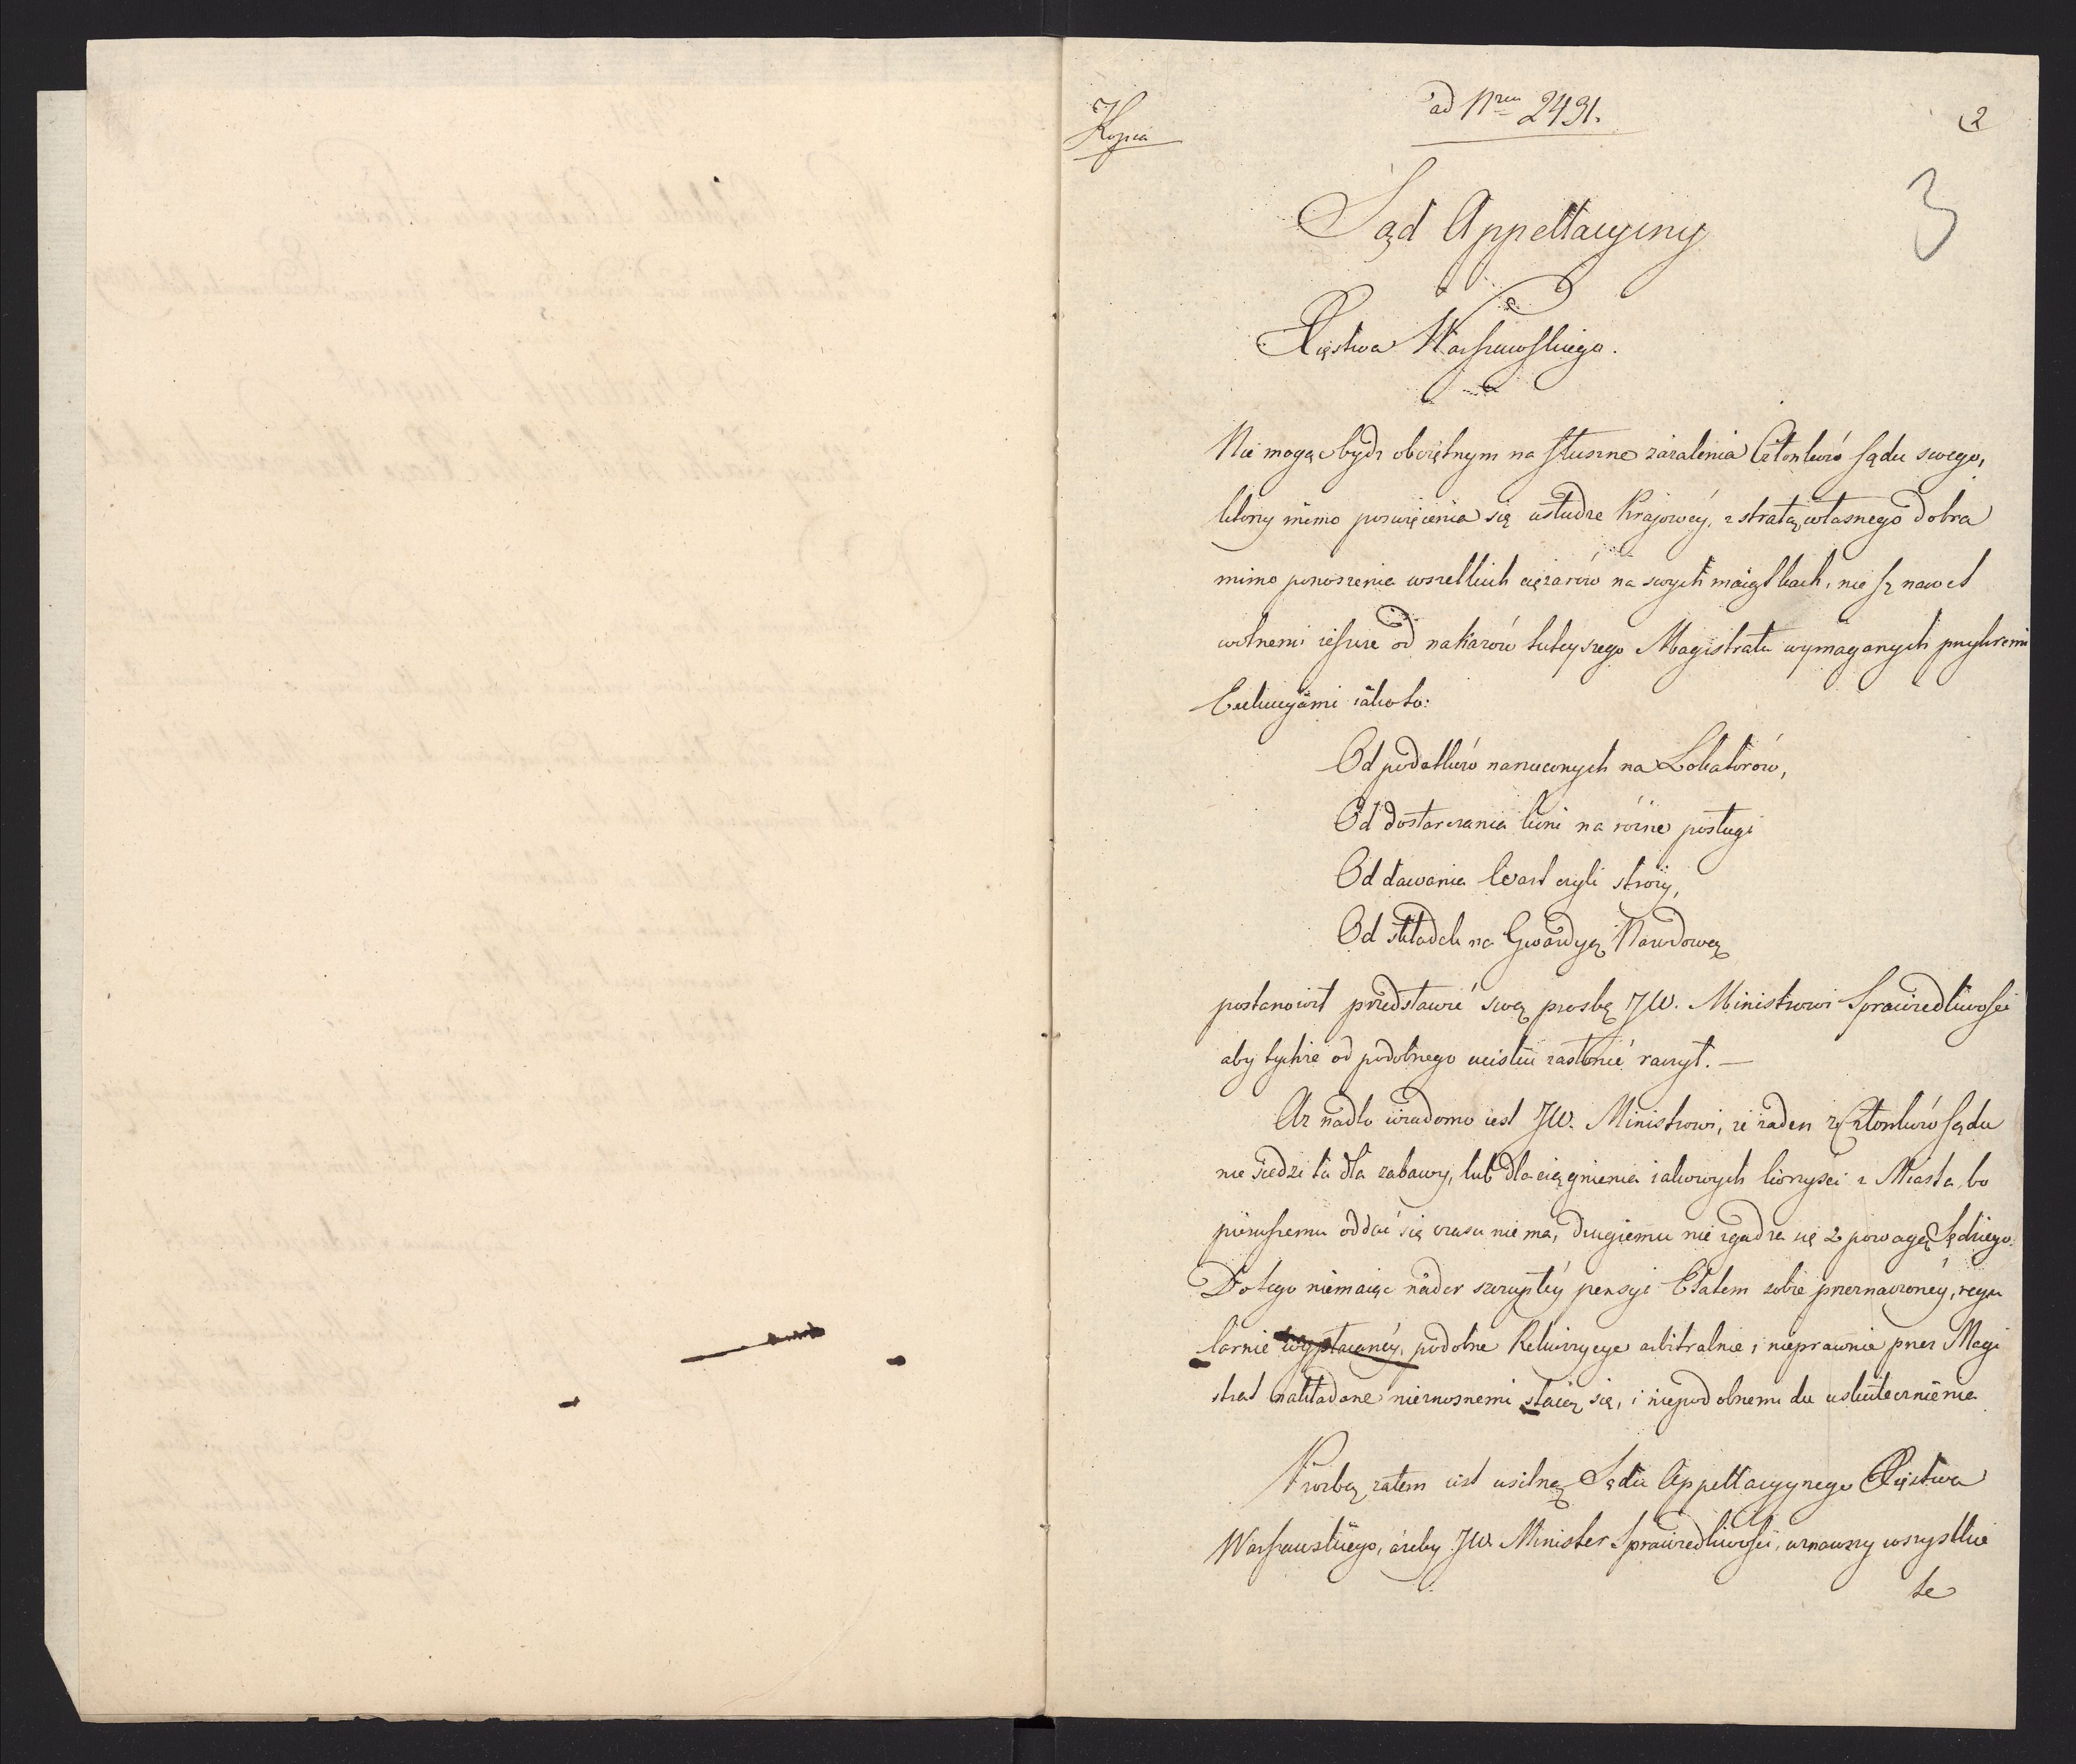 ad Nrm 2491.
2
Kopia
3
Sąd Appellacyiny
Xięstwa Warszawskiego.
Nie mogąc bydź oboiętnym na słuszne zażalenia Członków Sądu swego,
którzy mimo poswięcenia się usłudze Krajowey, z stratą własnego dobra
mimo ponoszenia wszelkich ciężarów na swych maiątkach, nie są nawet
wolnemi ieszcze od nakazów tuteyszego Magistratu wymaganych przykremi
Exekucyami iakoto:
Od podatków narzuconych na Lokatorów,
Od dostarczania koni na różne posługi
Od dawania Wart czyli stróży,
Od składek na Gwardyą Narodową
postanowił przedstawić swą prosbę JW. Ministrowi Sprawiedliwości
aby tychże od podobnego ucisku zasłonić raczył. —
Aż nadto wiadomo iest JW. Ministrowi, że żaden z Członków Sądu
nie siedzi tu dla zabawy, lub dla ciągnienia iakowych korzyści z Miasta, bo
pierwszemu oddać się czasu niema, drugiemu nie zgadza się z powagą Sędziego.
Do tego niemaiąc nader szczupłéy pensyi Etatem sobie przeznaczonéy, regu
larnie wypłacanéy, podobne Rekwizycye arbitralnie i nieprawnie przez Magi
strat nakładane nieznosnemi staią się, i niepodobnemi do uskutecznienia
Prozbą zatem iest usilną Sądu Appellacyynego Xięstwa
Warszawskiego, ażeby JW. Minister Sprawiedliwości, uznawszy wszystkie
te